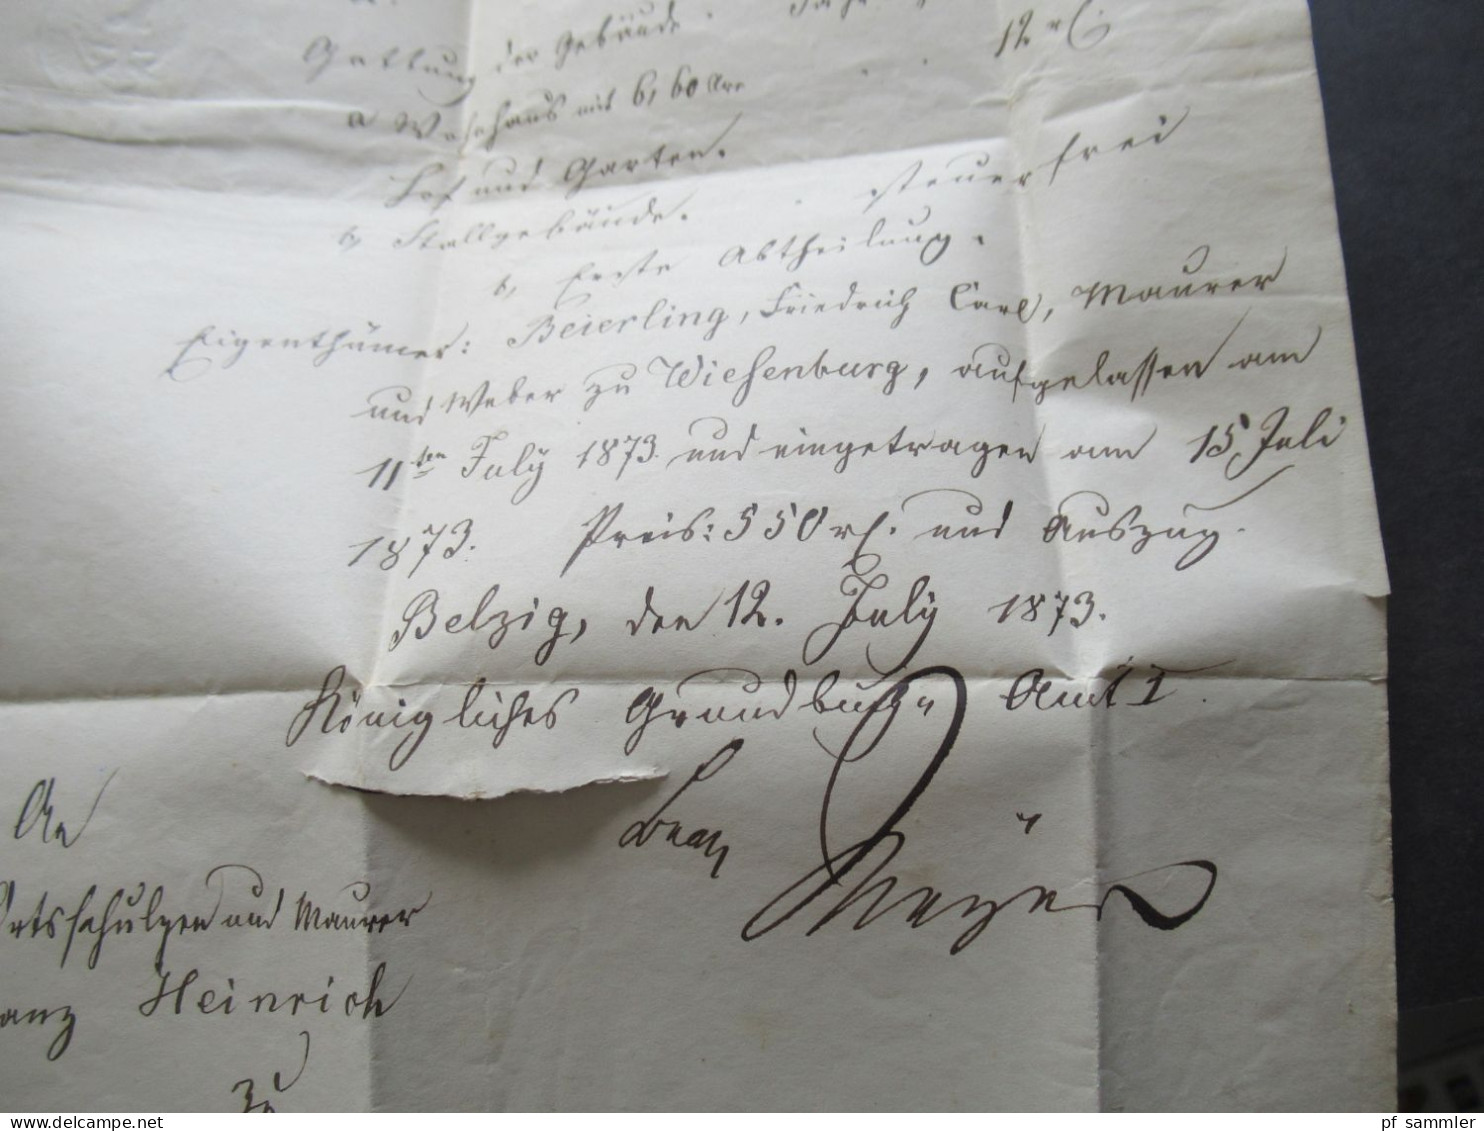 Gattung der Gebäude.
12 rℓ.
a Wohnhaus mit 6,60 Are
Hof und Garten.
b, Stallgebäude. . steuerfrei
b, Erste Abtheilung.
Eigenthümer: Beierling, Friedrich Carl, Maurer
und Weber zu Wiesenburg, aufgelassen am
11ten July 1873. und eingetragen am 15 Juli
1873. Preis: 550 rℓ. und Auszug.
Belzig, den 12. July 1873.
Königliches Grundbuch-Amt I.
Meyer
An
Ortsschulzen und Maurer
Heinrich
zu
pf_sammler
delcampe.net